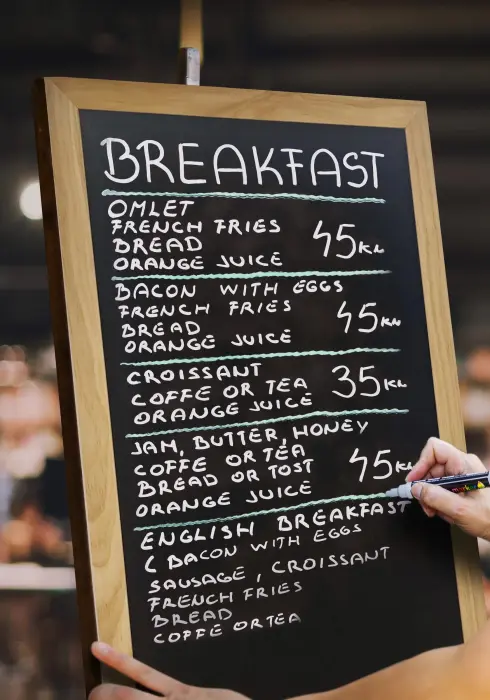 BREAKFAST
OMLET
FRENCH FRIES
BREAD
ORANGE JUICE
45 KN
BACON WITH EGGS
FRENCH FRIES
BREAD
ORANGE JUICE
45 KN
CROISSANT
COFFE OR TEA
ORANGE JUICE
35 KN
JAM, BUTTER, HONEY
COFFE OR TEA
BREAD OR TOST
ORANGE JUICE
45 KN
ENGLISH BREAKFAST
( BACON WITH EGGS
SAUSAGE, CROISSANT
FRENCH FRIES
BREAD
COFFE OR TEA